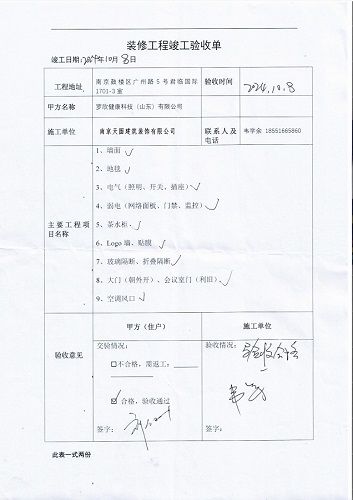 装修工程竣工验收单
竣工日期:2024年10月8日
工程地址
南京鼓楼区广州路5号君临国际
1701-3室
验收时间
2024.10.8
甲方名称
罗欣健康科技(山东)有限公司
施工单位
南京天圆建筑装饰有限公司
联系人及
电话
韦学余 18551665860
主要工程项
目名称
1、墙面 ✓
2、地毯 ✓
3、电气(照明、开关、插座) ✓
4、弱电(网络面板、门禁、监控) ✓
5、茶水柜 ✓
6、Logo 墙、贴膜 ✓
7、玻璃隔断、折叠隔断 ✓
8、大门(朝外开)、会议室门(利旧) ✓
9、空调风口 ✓
验收意见
甲方(住户)
交验情况:
□不合格,需返工:
☑合格,验收通过
签字:
施工单位
验收情况:
验收合格
签字:
此表一式两份